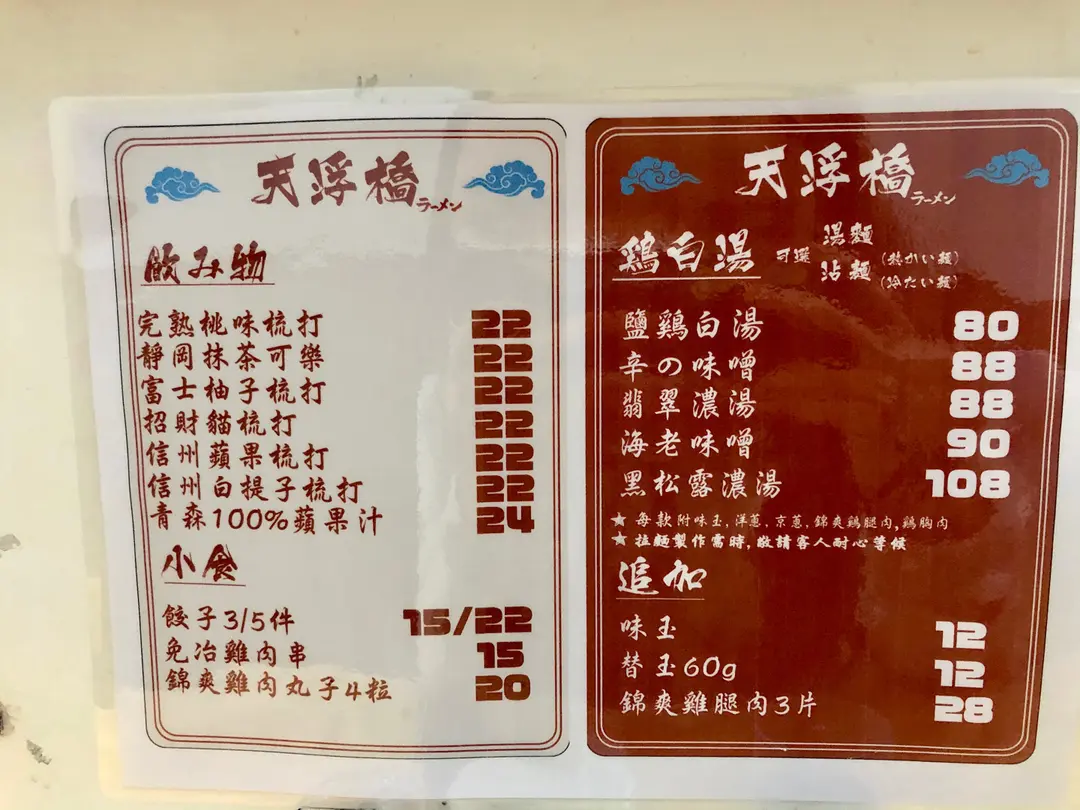 天浮橋
ラーメン
飲み物
完熟桃味梳打 22
靜岡抹茶可樂 22
富士柚子梳打 22
招財貓梳打 22
信州蘋果梳打 22
信州白提子梳打 22
青森100%蘋果汁 24
小食
餃子3/5件 15/22
免冶雞肉串 15
錦爽雞肉丸子4粒 20
天浮橋
ラーメン
鶏白湯 可選 湯麵 (熱かい麺)
沾麵 (冷たい麺)
鹽鶏白湯 80
辛の味噌 88
翡翠濃湯 88
海老味噌 90
黑松露濃湯 108
★ 每款附味玉, 洋蔥, 京蔥, 錦爽鶏腿肉, 鶏胸肉
★ 拉麵製作需時, 敬請客人耐心等候
追加
味玉 12
替玉60g 12
錦爽雞腿肉3片 28